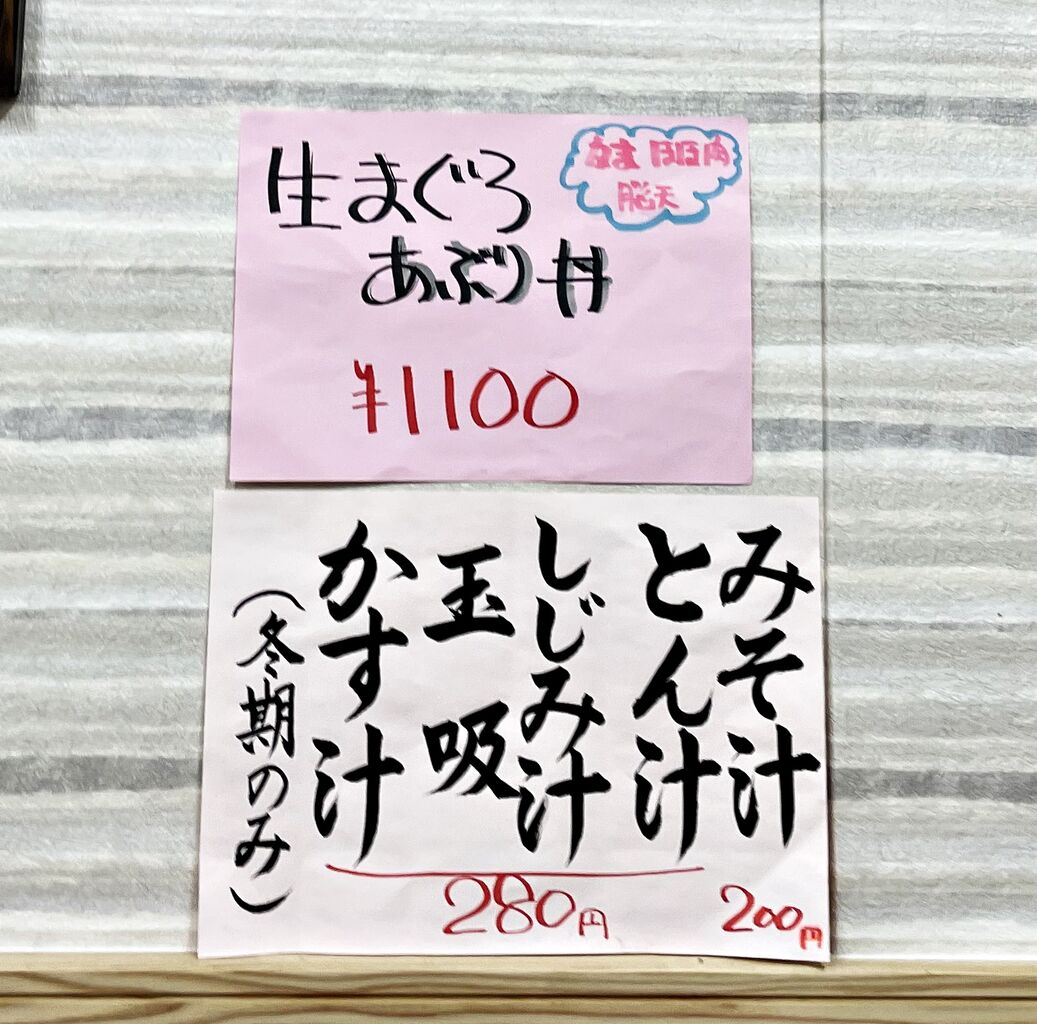 生まぐろ
あぶり丼
脳天
¥1100
みそ汁
とん汁
しじみ汁
玉吸
かす汁
(冬期のみ)
200円
280円